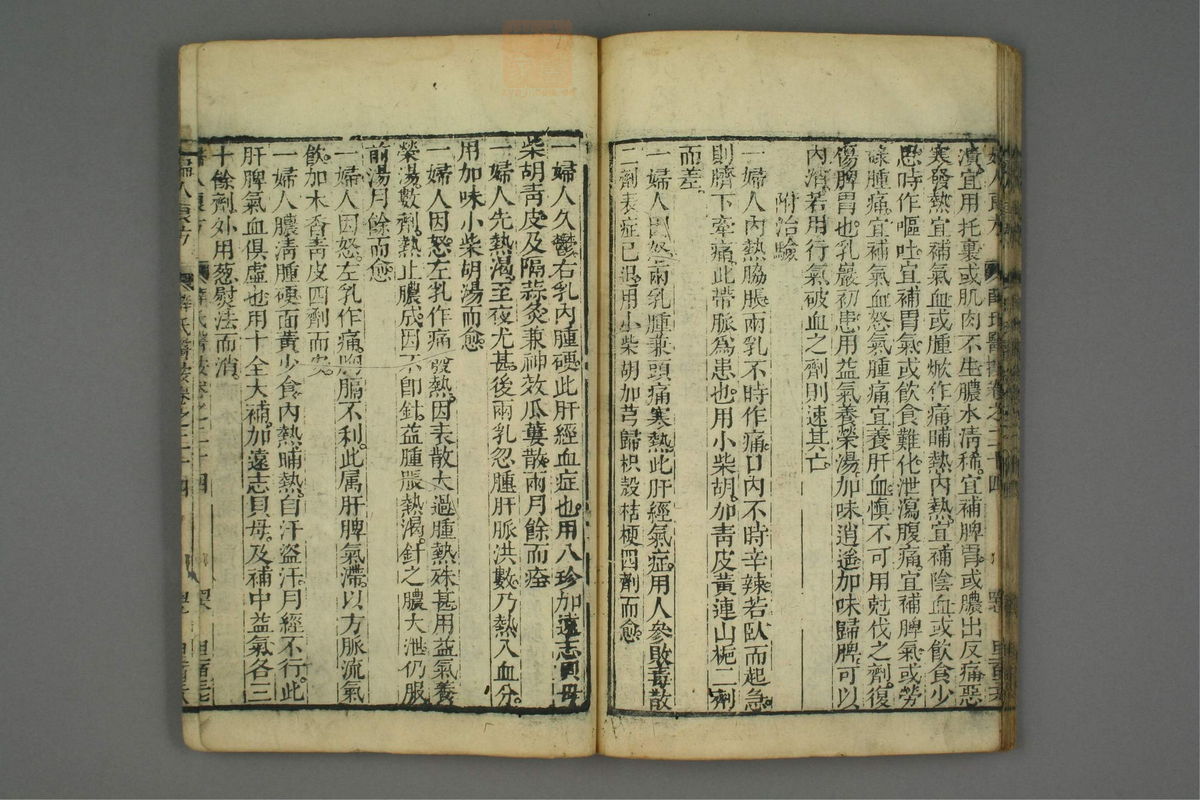 潰宜用托裏或肌肉不生膿水清稀宜補脾胃或膿出反痛惡
寒發熱宜補氣血或腫焮作痛晡熱內熱宜補陰血或飲食少
思時作嘔吐宜補胃氣或飲食難化泄瀉腹痛宜補脾氣或勞
碌腫痛宜補氣血怒氣腫痛宜養肝血慎不可用尅伐之劑復
傷脾胃也乳巖初患用益氣養榮湯加味逍遙加味歸脾可以
內消若用行氣破血之劑則速其亡
附治驗
一婦人內熱脇脹兩乳不時作痛口內不時辛辣若臥而起急
則臍下牽痛此帶脈為患也用小柴胡加青皮黃連山梔二劑
而差
一婦人因怒兩乳腫兼頭痛寒熱此肝經氣症用人參敗毒散
二劑表症已退用小柴胡加芎歸枳殼桔梗四劑而愈
一婦人久鬱右乳內腫硬此肝經血症也用八珍加遠志貝母
柴胡青皮及隔蒜灸兼神效瓜蔞散兩月餘而痊
一婦人先熱渴至夜尤甚後兩乳忽腫肝脈洪數乃熱入血分
用加味小柴胡湯而愈
一婦人因怒左乳作痛發熱因表散太過腫熱殊甚用益氣養
榮湯數劑熱止膿成因不卽針益腫脹熱渴針之膿大泄仍服
前湯月餘而愈
一婦人因怒左乳作痛胸膈不利此属肝脾氣滯以方脈流氣
飲加木香青皮四劑而安
一婦人膿清腫硬面黃少食內熱晡熱自汗盜汗月經不行此
肝脾氣血俱虛也用十全大補加遠志貝母及補中益氣各三
十餘劑外用葱熨法而消
婦人良方 薛氏醫按卷之二十四